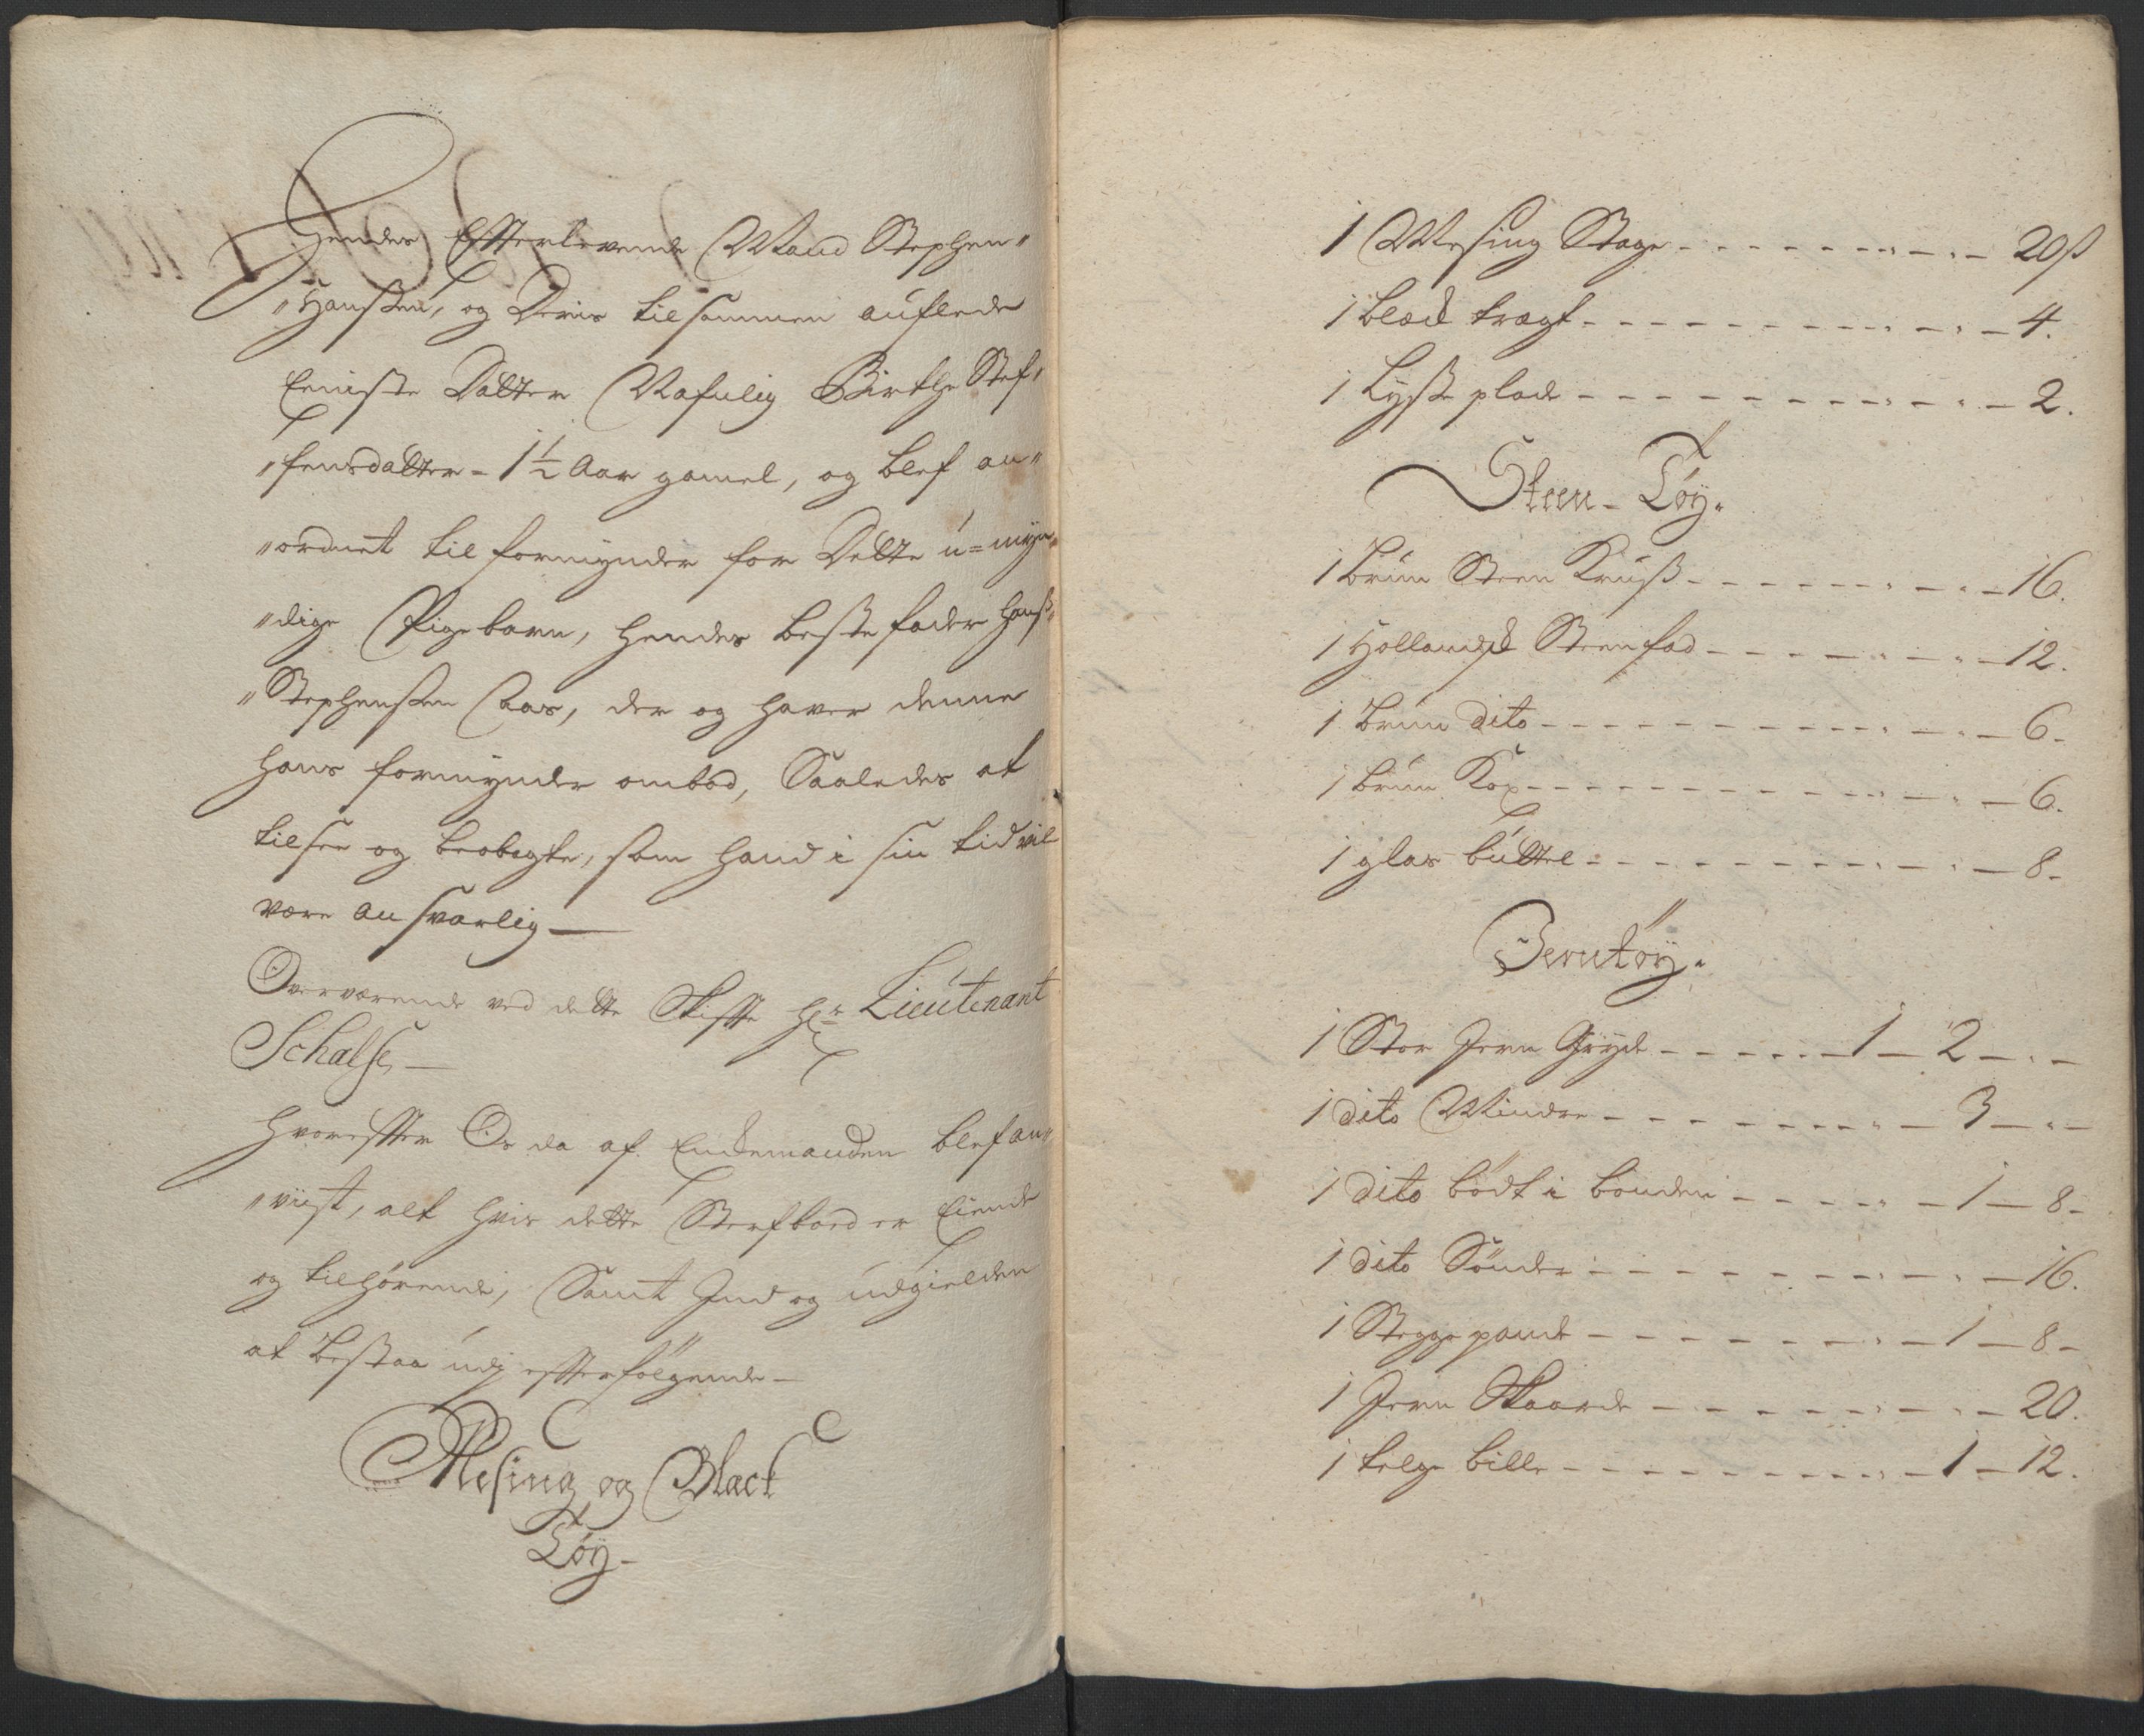 Hendes Efterlevende Mand Stephen„
„Hanßen, og Deris tilsammen auflede
Eeniste Datter Nafnlig Birthe Stef„
„fensdatter - 1½ Aar gamel, og blef an„
„ordnet til formynder for Dette u=myn„
„dige Pigebarn, hendes beste fader Hanß„
„Stephenßen Aas, der og haver denne
hans formynder ombod, Saaledes at
tilsee og beobagte, som hand i sin tid vil
være ansvarlig —
Overværende ved dette Skifte Hr Lieutenant
Schalse, —
Hvorefter Os da af Enckemanden blef an„
„viist, alt hvis dette Sterfboed er Eiende
og tilhørende, Samt Ind og udgielden
at bestaa udj efterfølgende —
Mesing og Black
Tøy -
1 Mesing Stage - - - 20 ß
1 bleck tragt - - - 4.
1 Lyße plade - - - 2.
Steen - Tøy.
1 bruun Steen Kruuß - - - 16.
1 Hollandsk Steenfad - - - 12.
1 bruun dito - - - 6.
1 bruun Kop - - - 6.
1 glas buttel - - - 8.
Jerntøy.
1 Stor Jern Gryde - - - 1 — 2 — . —
1 dito Mindre - - - 3 — . —
1 dito bødt i bonden - - - 1 — 8.
1 dito Sønder - - - 16.
1 Steggepande - - - 1 — 8 -
1 Jern Skaarde - - - 20.
1 telge bille - - - 1 — 12.